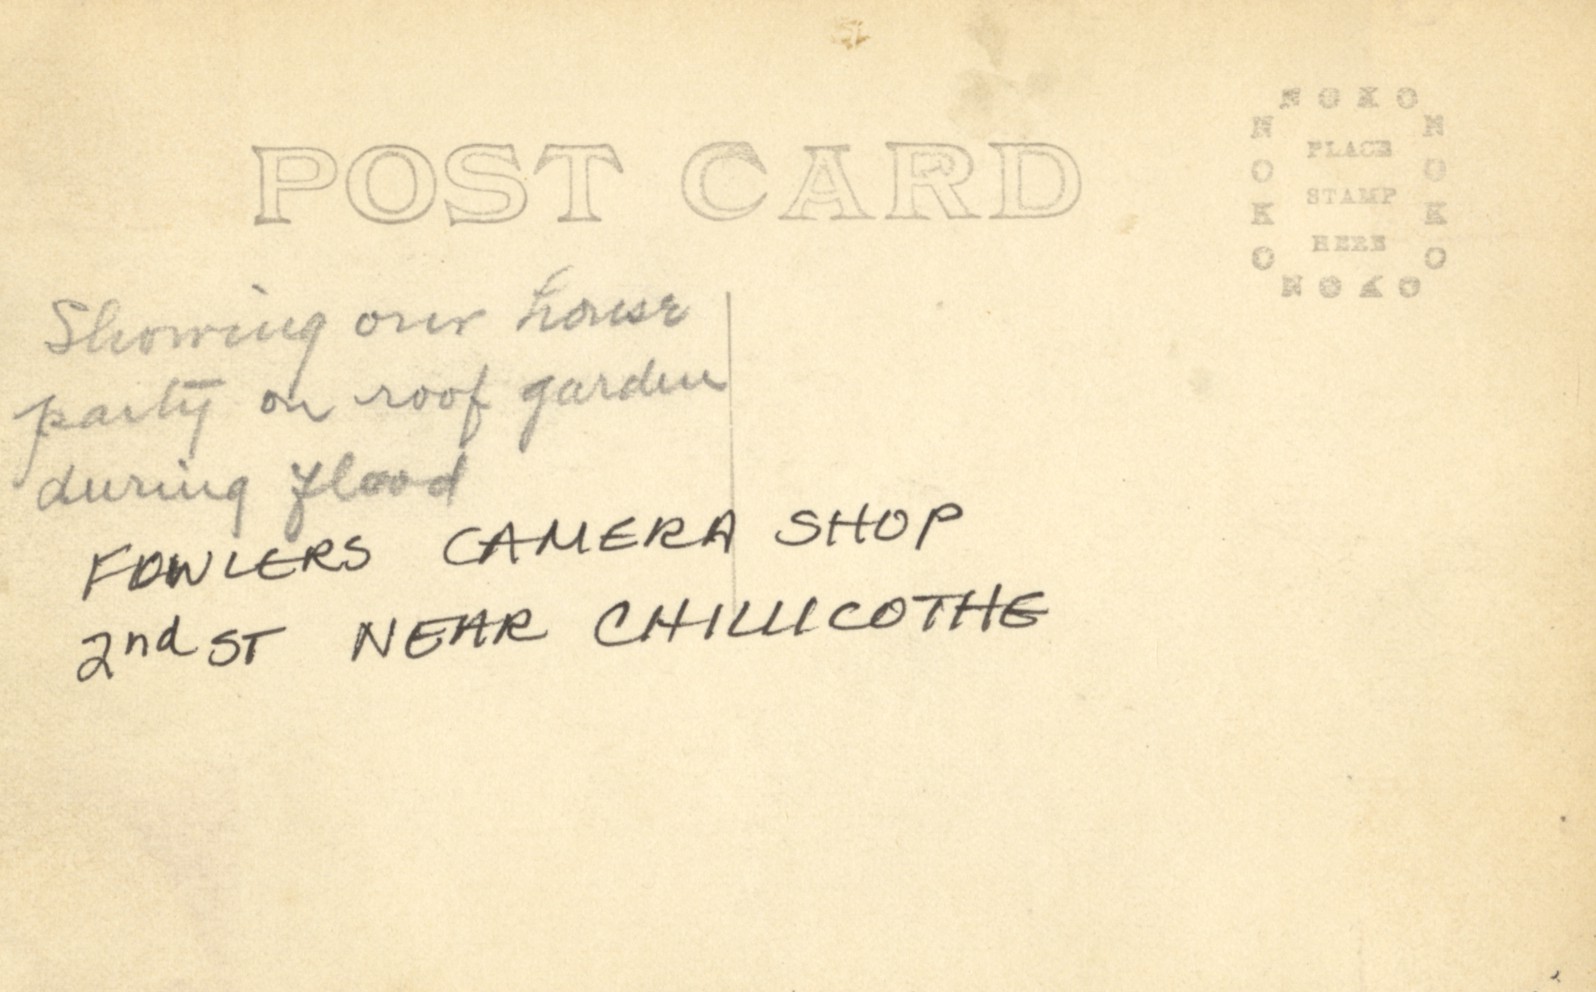 POST CARD
NOKO
NOKO
NOKO
NOKO
PLACE
STAMP
HERE
Showing our house
party on roof garden
during flood
FOWLERS CAMERA SHOP
2nd ST NEAR CHILLICOTHE